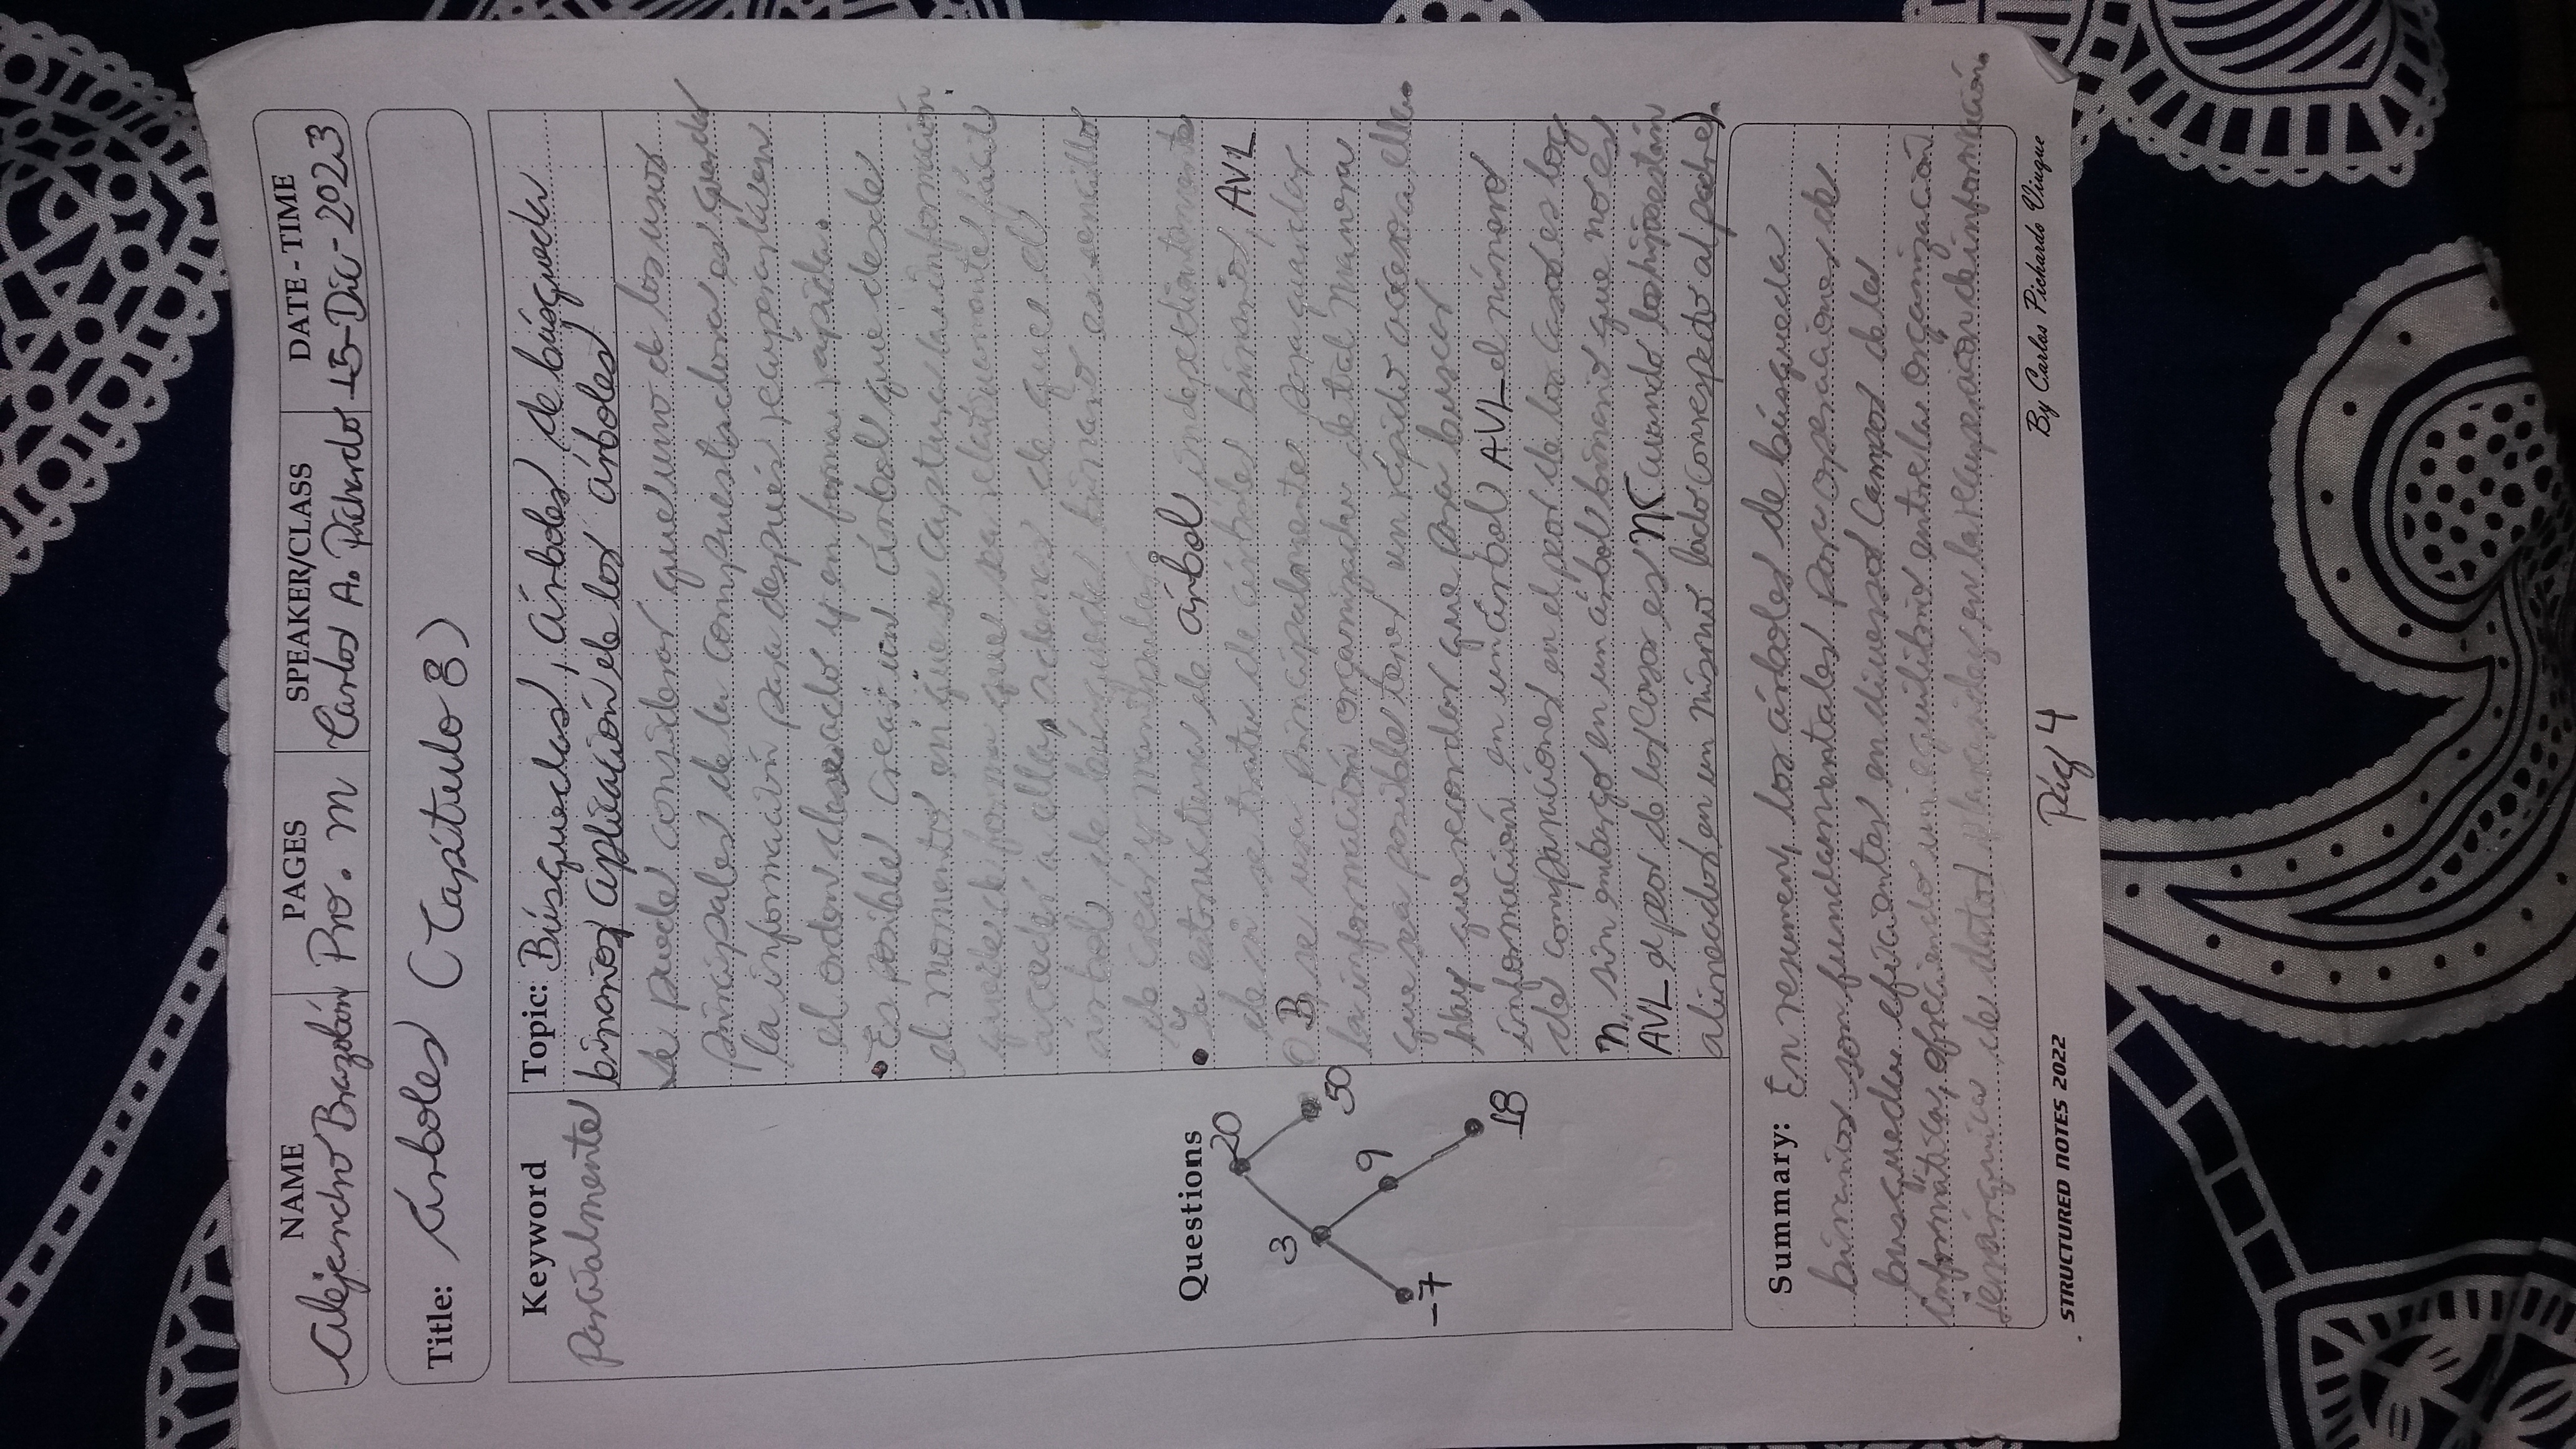 NAME PAGES SPEAKER/CLASS DATE-TIME
Alejandro Brazobán Pro. M Carlos A. Pichardo 15-Dic-2023
Title: Árboles (Capítulo 8)
Keyword
Parcialmente
Topic: Búsquedas, Árboles de búsqueda
binarios, aplicación de los árboles
Se puede considerar que uno de los usos
principales de la compuestadora es guardar
la información para después recuperarla en
el orden deseado y en forma rápida.
• Es posible crear un árbol que desde
el momento en que se captura la información
quede de forma que sea relativamente fácil
acceder a ella, ademas de que el
árbol de búsqueda binario es sencillo
de crear y manipular.
• La estructura de árbol independientemente
de si se trata de árboles binarios, AVL
O B, se usa principalmente para guardar
la información organizada de tal manera
que sea posible tener un rápido acceso a ella.
Hay que recordar que para buscar
información en un árbol AVL el número
de comparaciones en el peor de los casos es log
n, sin embargo en un árbol binario que no es
AVL el peor de los casos es n (cuando los hijos están
alineados en un mismo lado con respecto al padre).
Questions
20
3
50
9
-7
18
Summary: En resumen, los árboles de búsqueda
binarios son fundamentales para operaciones de
busqueda eficientes en diversos Campos de la
informática, ofreciendo un equilibrio entre la organización
jerárquica de datos en la recuperación de información.
STRUCTURED NOTES 2022
Pág 4
By Carlos Pichardo Viuque